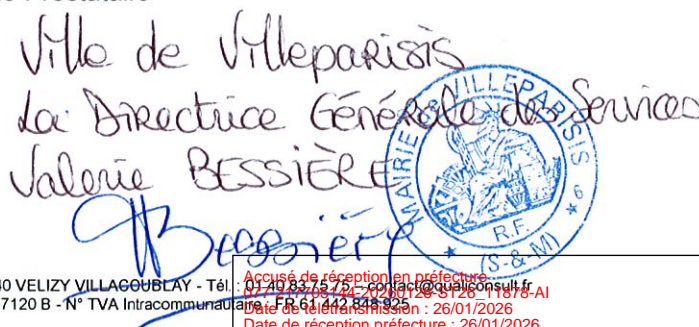 Ville de Villeparisis
La Directrice Générale des Services
Valerie BESSIÈRE
MAIRIE DE VILLEPARISIS
R.F.
(S.-&-M)
Bessière
40 VELIZY VILLACOUBLAY - Tél. : 01 40 83 75 75 – contact@qualiconsult.fr
7120 B - N° TVA Intracommunautaire : FR 61 442 848 925
Accusé de réception en préfecture
Date de télétransmission : 26/01/2026
Date de réception préfecture : 26/01/2026